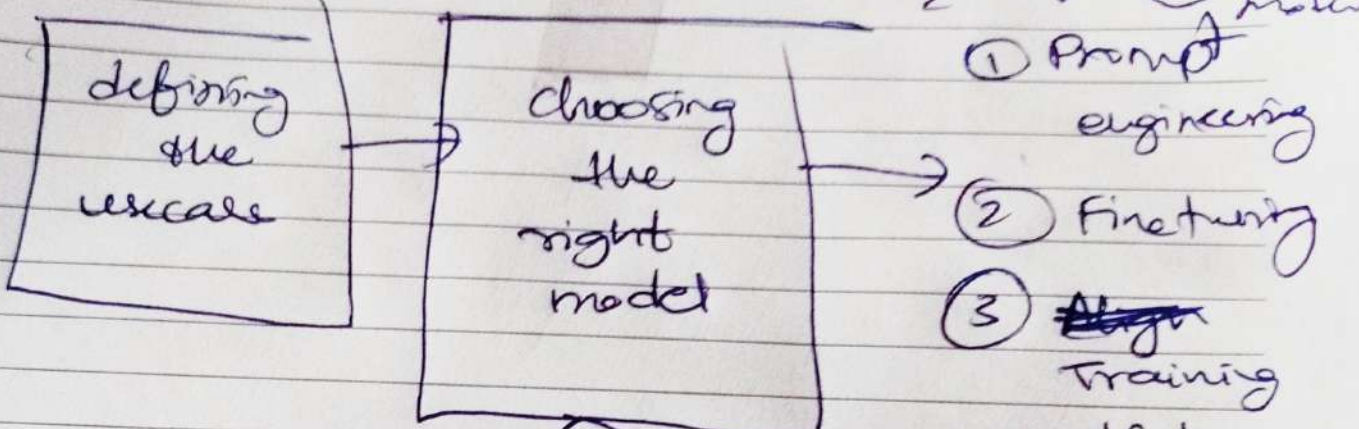 defining
the
usecase
choosing
the
right
model
① Prompt
engineering
② Finetuning
③ Align
Training